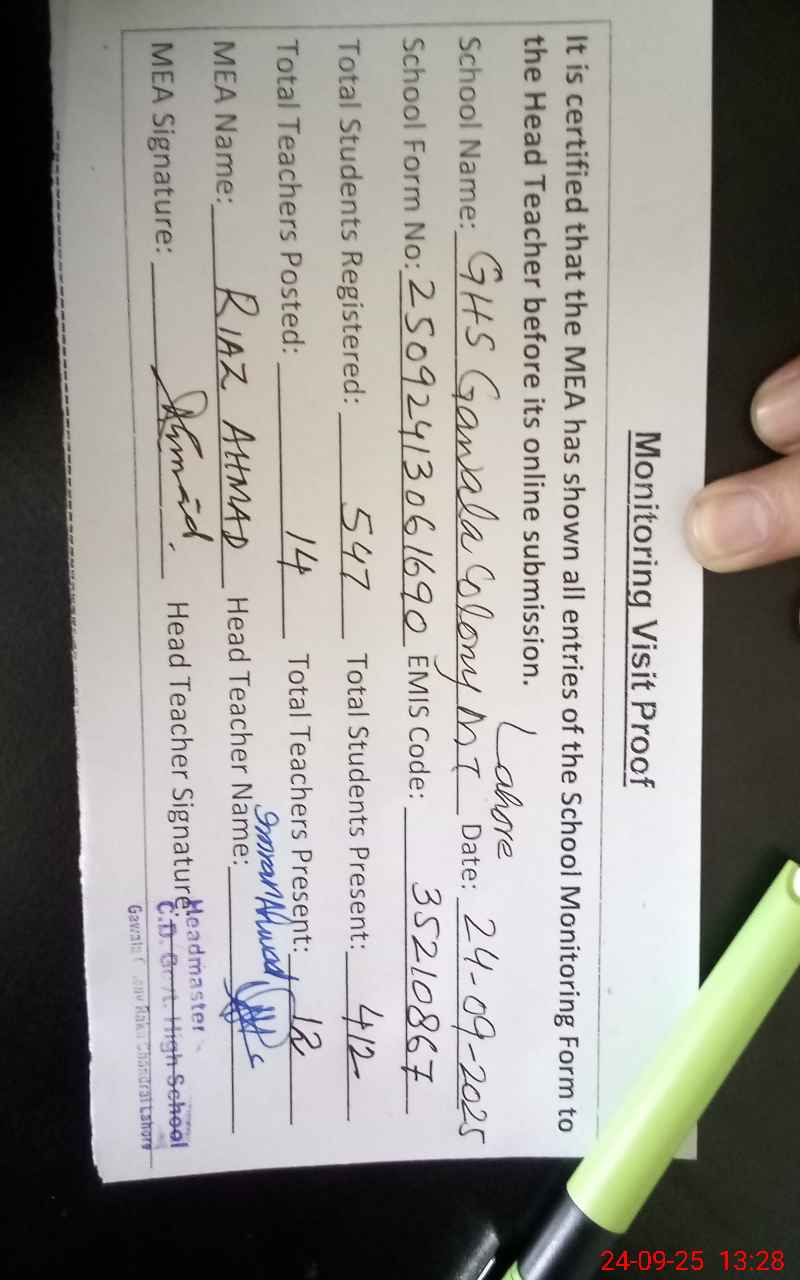 Monitoring Visit Proof
It is certified that the MEA has shown all entries of the School Monitoring Form to
the Head Teacher before its online submission.
Lahore
School Name: GHS Gawala Colony MT Date: 24-09-2025
School Form No: 25092413061690 EMIS Code: 35210867
Total Students Registered: 547 Total Students Present: 412
Total Teachers Posted: 14 Total Teachers Present: 12
MEA Name: RIAZ AHMAD Head Teacher Name: Imran Ahmad
MEA Signature: Ahmad. Head Teacher Signature:
Headmaster
C.D. Govt. High School
Gawala Colony Lahore
24-09-25 13:28